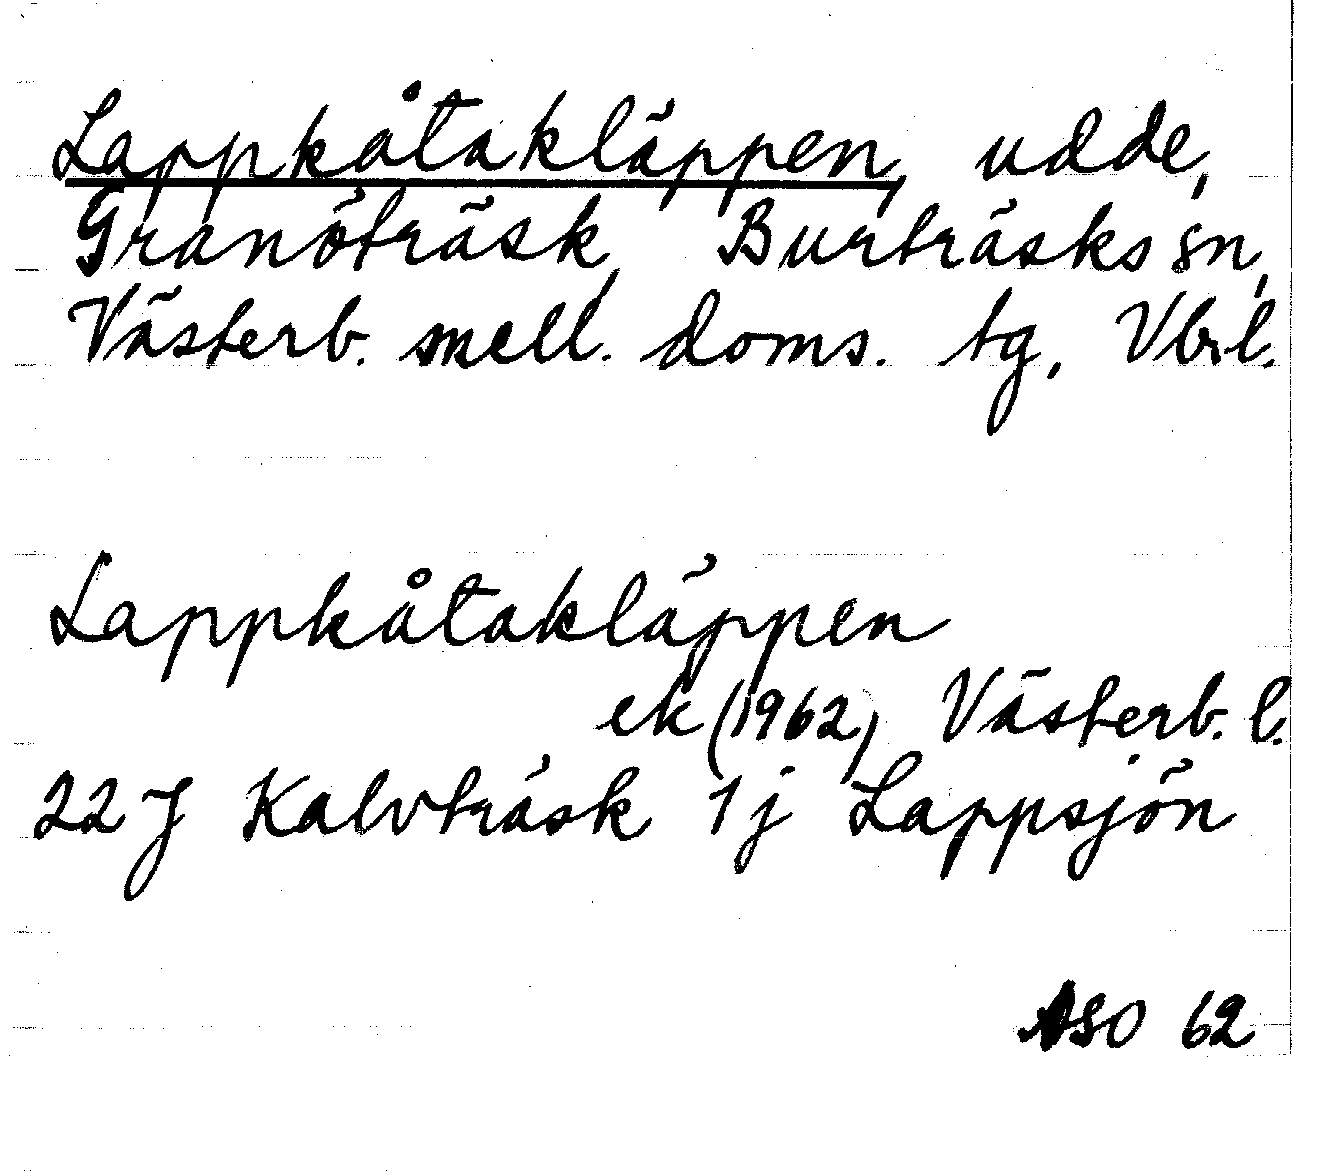 Lappkåtakläppen, udde,
Granöträsk, Burträsks sn,
Västerb. mell. doms. tg, Vbl.
Lappkåtakläppen
ek (1962) Västerb. l.
22 J Kalvträsk 1j Lappsjön
ASO 62